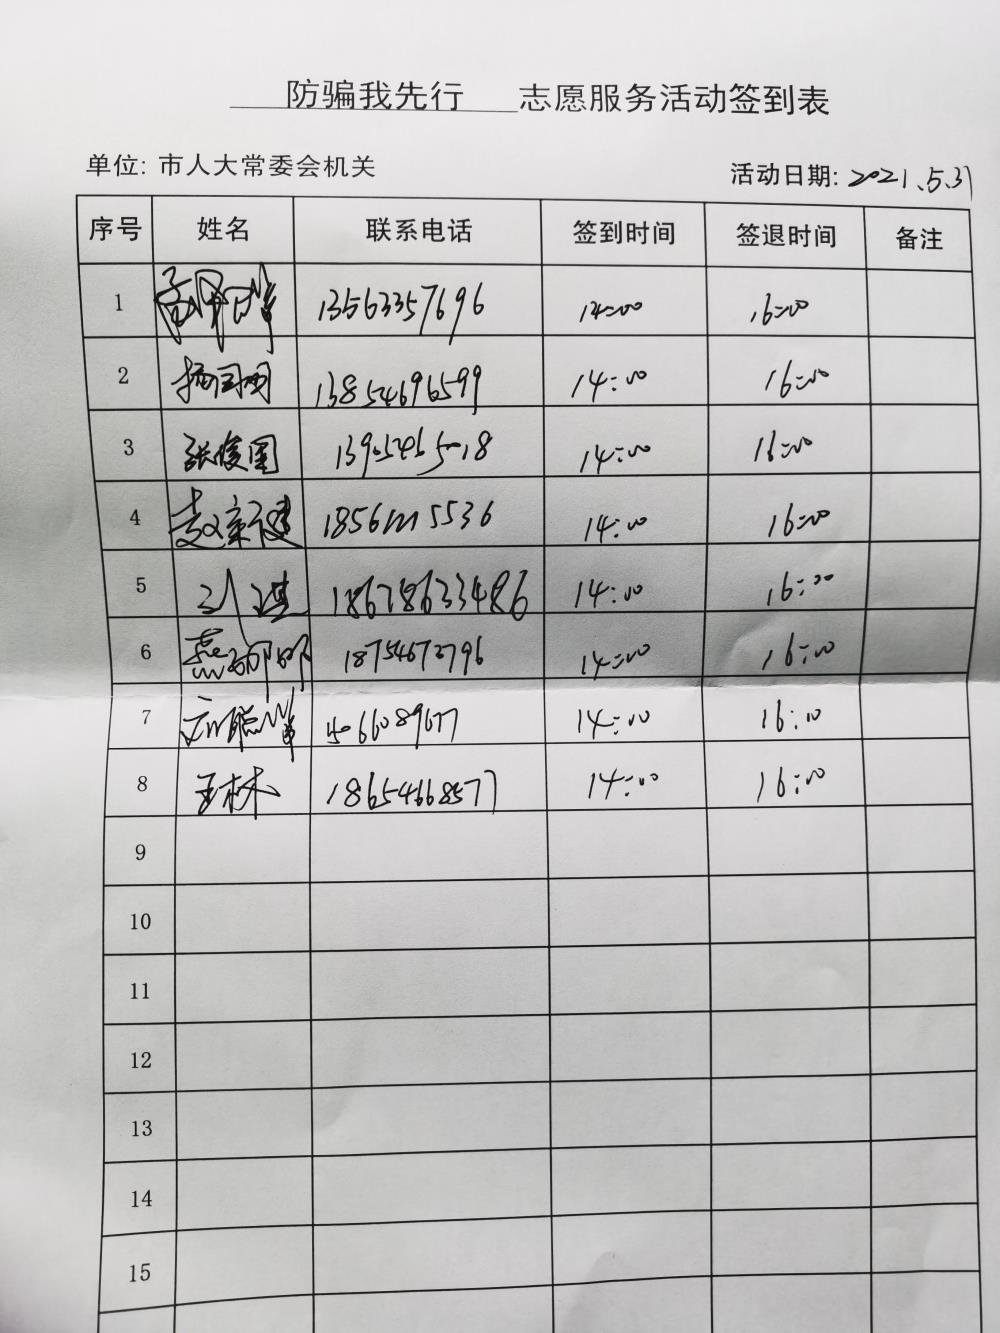 防骗我先行 志愿服务活动签到表
单位: 市人大常委会机关 活动日期: 2021.5.31
序号 姓名 联系电话 签到时间 签退时间 备注
1 13563357696 14:00 16:00
2 13854696599 14:00 16:00
3 张俊国 14:00 16:00
4 14:00 16:00
5 刘琪 18678633486 14:00 16:00
6 18754672796 14:00 16:00
7 15066089677 14:00 16:00
8 王林 18654668577 14:00 16:00
9
10
11
12
13
14
15